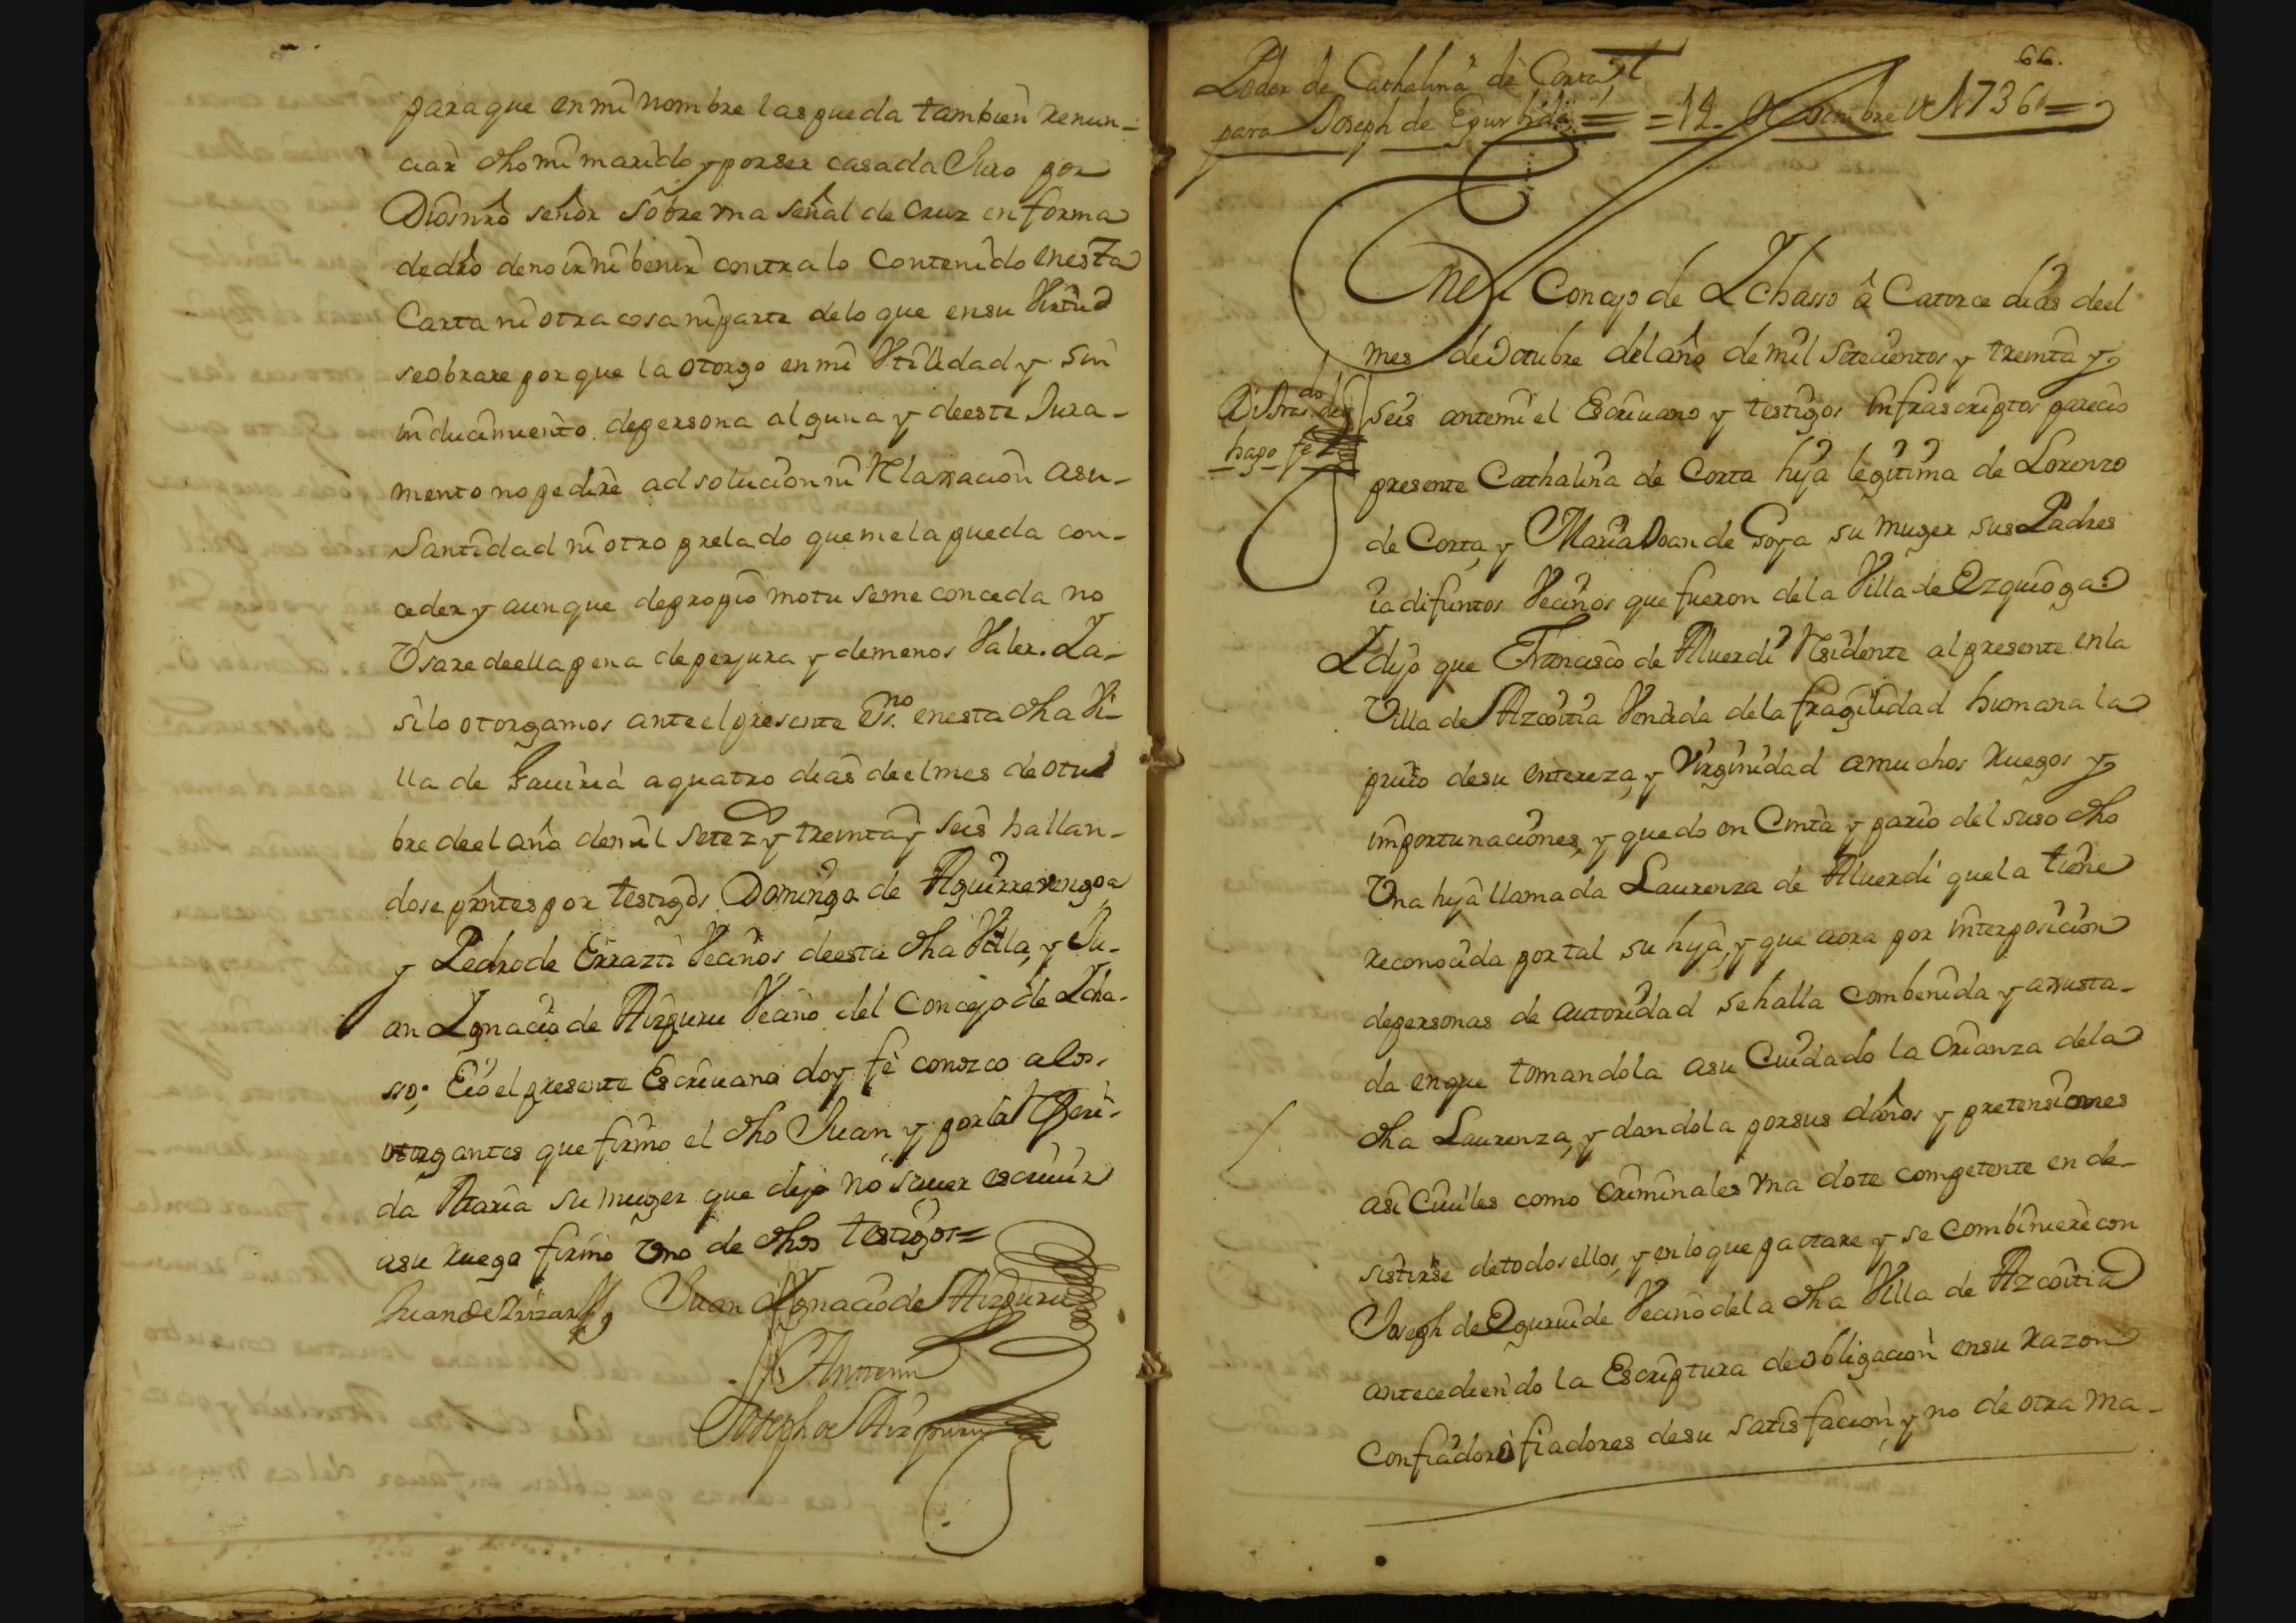 para que en mi nombre las pueda tambien renun-
ciar dho mi marido y por ser casada Juro por
Dios nrō señor sobre vna señal de cruz en forma
de dro de no ir ni benir contra lo contenido en esta
Carta ni otra cosa ni parte de lo que en su Virtud
se obrare por que la otorgo en mi Vtilidad y sin
inducimiento de persona alguna y de este Jura-
mento no pedire adsolucion ni Relaxacion a su-
Santidad ni otro prelado que me la pueda con-
ceder y aunque de propio motu se me conceda no
Vsare de ella pena de perjura y de menos Valer. Ia-
si lo otorgamos ante el presente Esno. en esta dha Vi-
lla de Gauiria a quatro dias de el mes de otu
bre de el año de mil setez y treinta y seis hallan-
dose pntes por testigos Domingo de Aguirrevengoa
y Pedro de Errazti Vecinos de esta dha Villa, y Ju-
an Ignacio de Aizpuru Vecino del Concejo de Icha-
sso; E io el presente Escriuano doy fe conozco a los.
otorgantes que firmo el dho Juan, y por la Referi-
da Maria su muger que dijo no sauer escriuir
a su ruego firmo Vno de dhos testigos=
Juan Ignacio de Aizpuru
Ante mi
Joseph de Aizpuru
66.
Poder de Cathalina de Corta
para Joseph de Egurbide = = 14 Octubre de 1736 =
En el Concejo de Ichasso â Catorce dias de el
mes de Octubre del año de mil Setecientos y treinta y
seis ante mi el Escriuano y testigos infrascriptos parecio
hago fe
presente Cathalina de Corta hija legitima de Lorenzo
de Corta, y Maria Joan de Goya su muger sus Padres
ia difuntos Vecinos que fueron de la Villa de Ezquioga:
I dijo que Francisco de Alverdi Residente al presente en la
Villa de Azcoitia Vencida de la fragilidad humana la
priuo de su entereza, y Virginidad a muchos ruegos y
importunaciones, y quedo en Cinta y pario del suso dho
Vna hija llamada Laurenza de Alverdi que la tiene
reconocida por tal su hija, y que aora por interposicion
de personas de autoridad se halla combenida y axusta-
da en que tomandola a su Cuidado la Crianza de la
dha Laurenza, y dandola por sus daños y pretensiones
asi Ciuiles como Criminales vna dote competente en de-
sistirse de todos ellos, y en lo que pactare y se combiniere con
Joseph de Eguruide Vecino de la dha Villa de Azcoitia
antecediendo la Escriptura de obligacion en su razon
con fiador ò fiadores de su satisfacion, y no de otra ma-